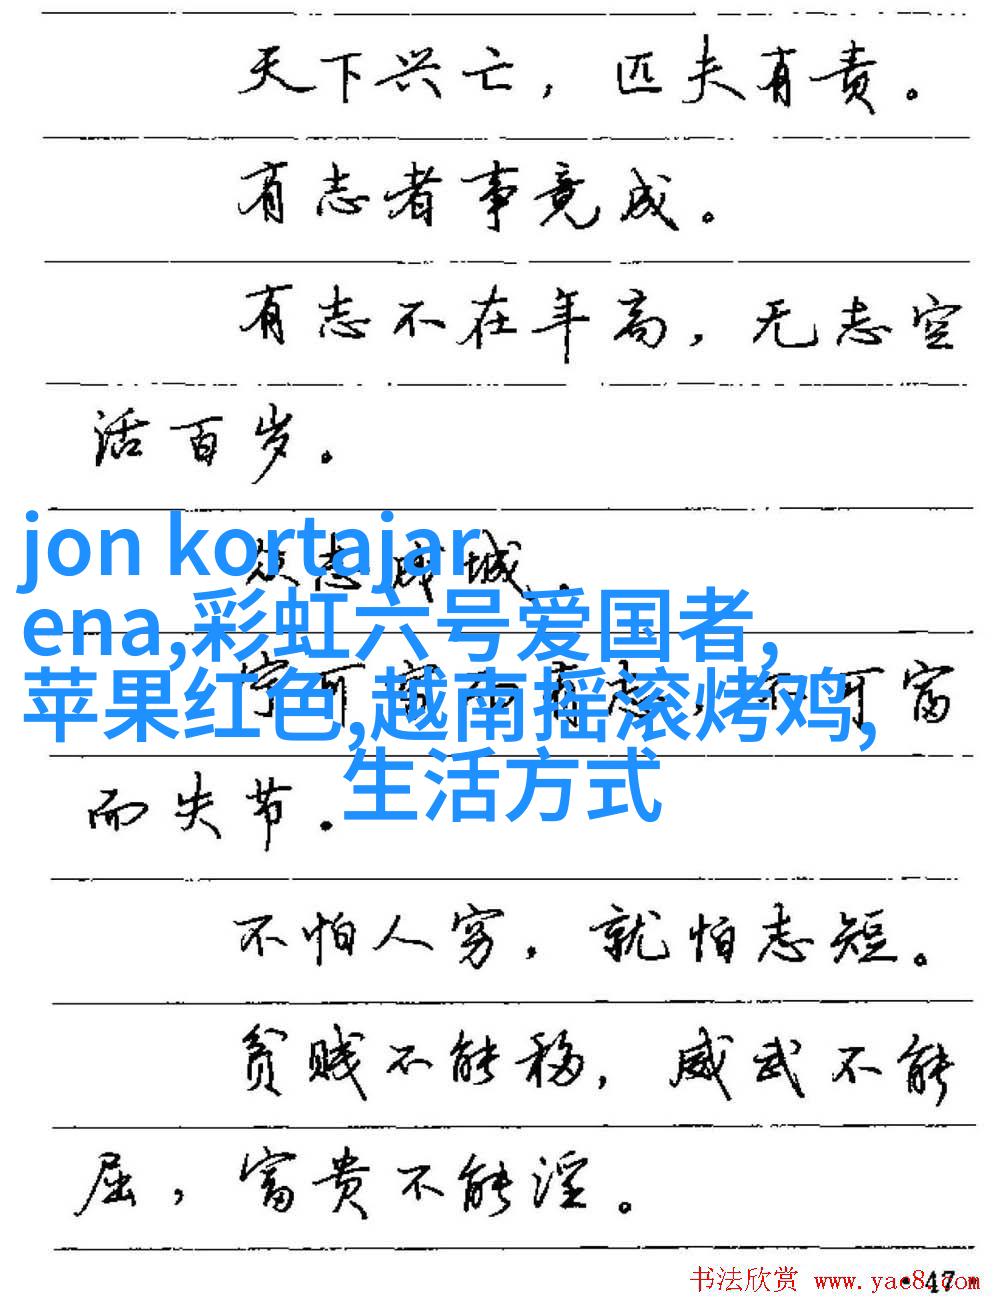 天下兴亡，匹夫有责。
有志者事竟成。
有志不在年高，无志空
活百岁。
众志成城。
jon kortajar
ena,彩虹六号爱国者,
宁可穷而有志，不可富
苹果红色,越南摇滚烤鸡,
生活方式
而失节．
不怕人穷．就怕志短。
贫贱不能移，威武不能
屈，富贵不能淫。
书法欣赏 www.yac8.com
·47·